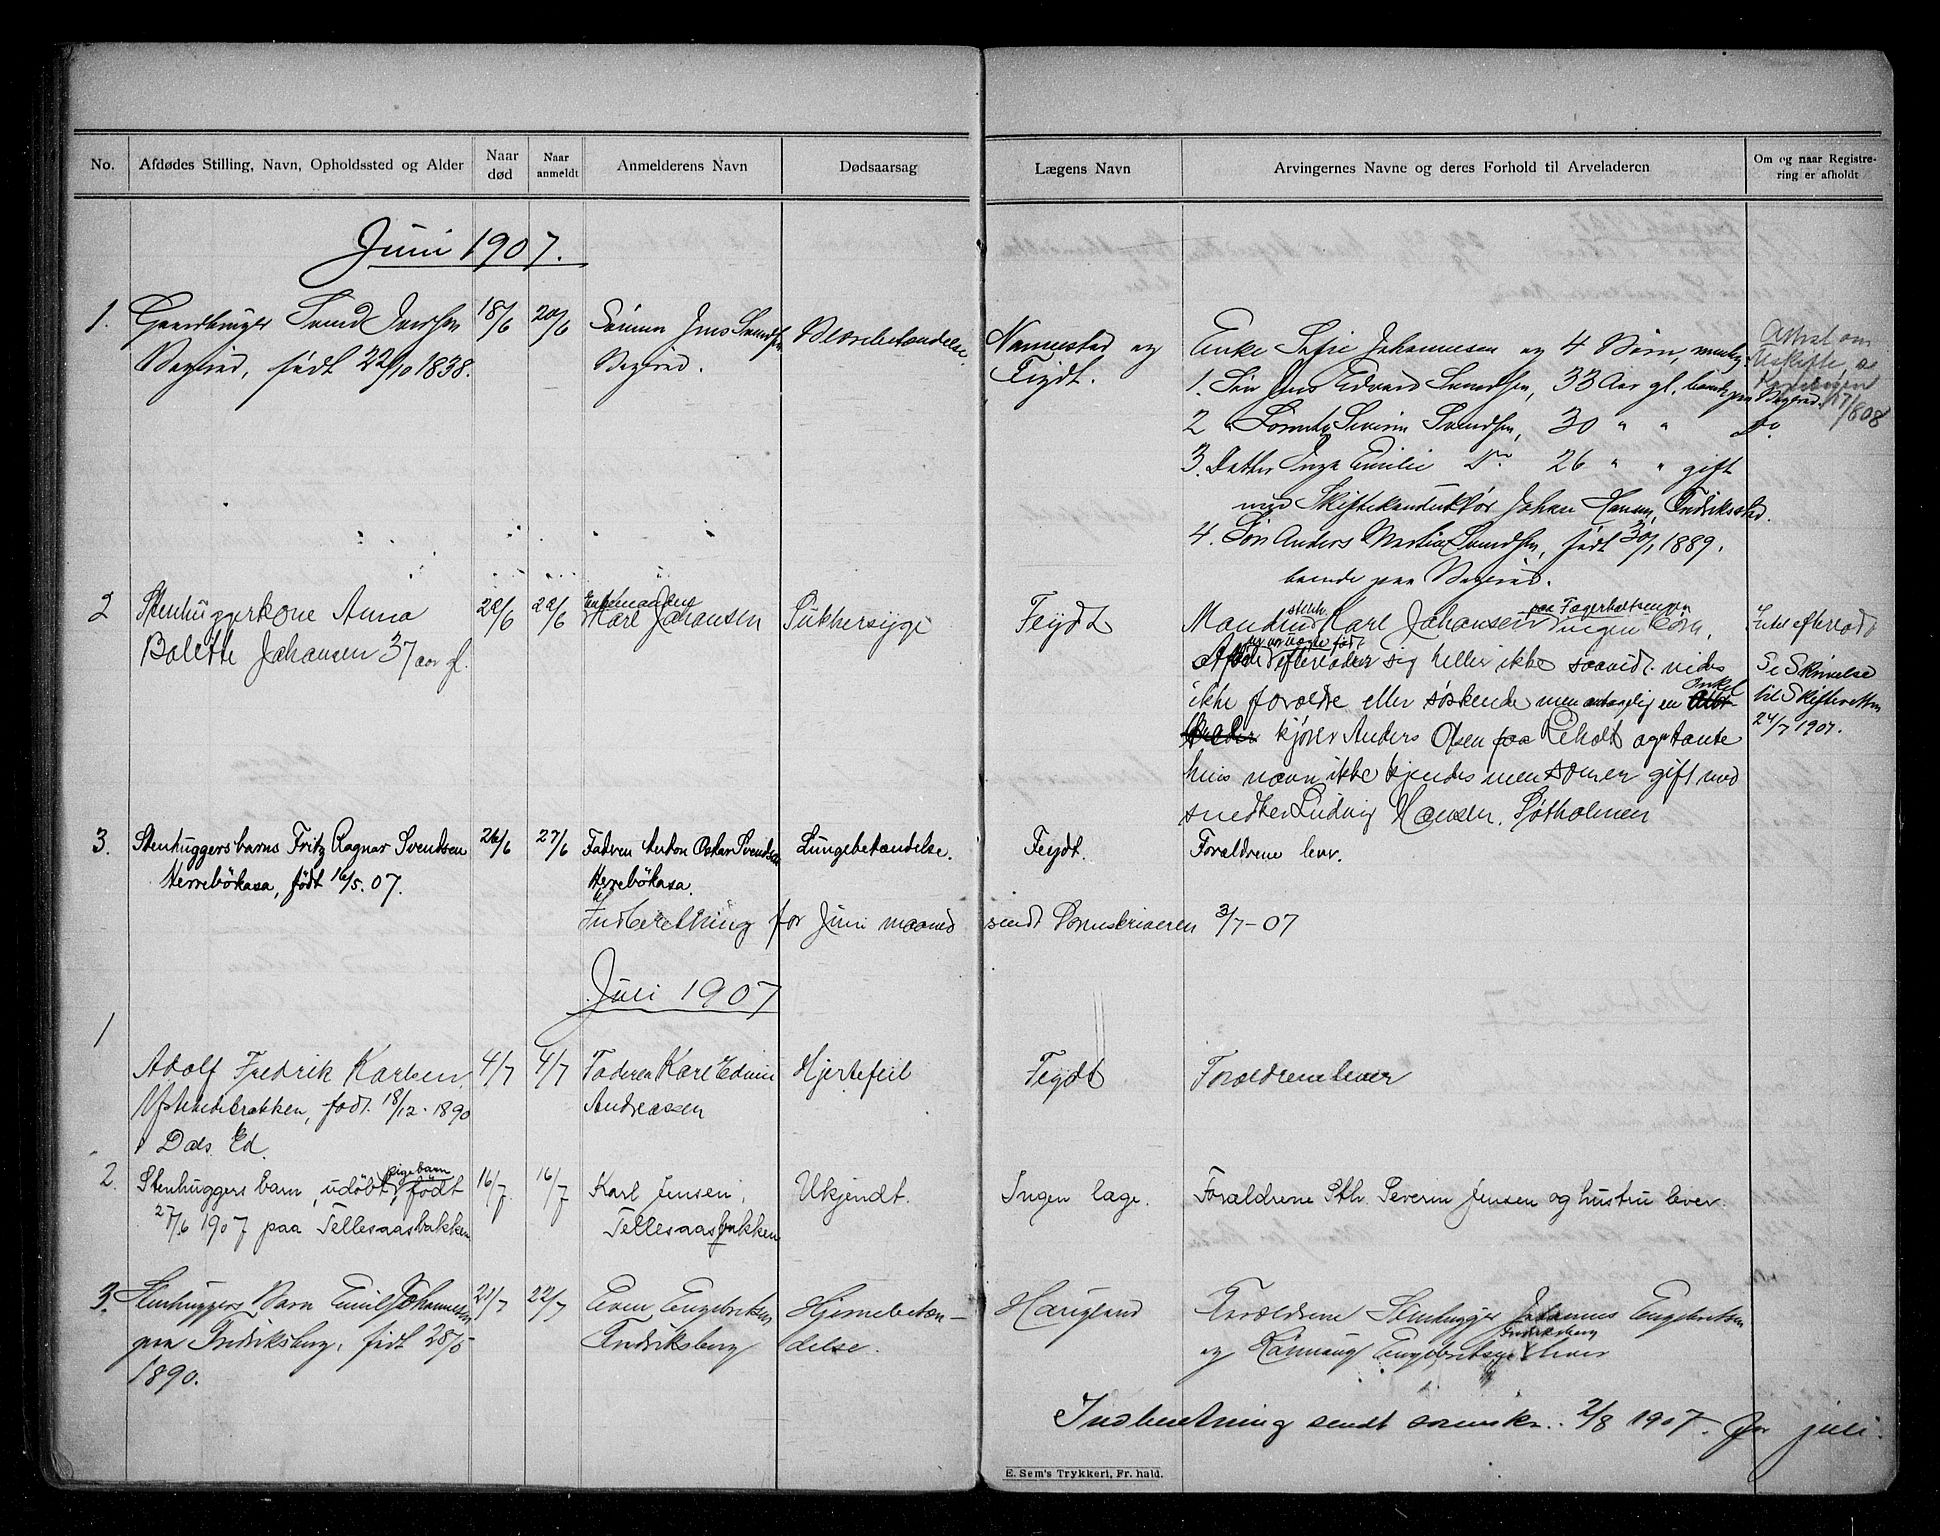 No.
Afdødes Stilling, Navn, Opholdssted og Alder
Naar død
Naar anmeldt
Anmelderens Navn
Dødsaarsag
Lægens Navn
Arvingernes Navne og deres Forhold til Arveladeren
Om og naar Registrering er afholdt
Juni 1907.
1. Gaardbruger Svend 18/6 20/6 Sønnen Jens Svendsen
født 22/10 1838.
Nannestad og
Feydt.
Enke Sofie Johannesen og 4 Børn,
1. Søn Jens Edvard Svendsen, 33 Aar gl.
2 " Severin Svendsen, 30 " " Do
3. Datter Inga Emilie Do 26 " " gift
med Johan Hansen, Fredriksstad.
4. Søn Anders Martin Svendsen, født 30/1 1889.
boende paa
Uskifte, se
17/8 08
2 Stenhuggerkone Anna
Bolette Johansen 37 aar gl.
22/6 22/6 Enkemanden
Karl Johansen
Sukkersyge
Feydt
Manden stenh. Karl Johansen paa Fagerholt ingen Børn,
Afdøde efterlader sig heller ikke saavidt vides
ikke forældre eller søskende men antagelig en onkel
kjører Anders Olsen Liholt og tante
hvis navn ikke kjendes men som er gift med
snedker Ludvig Hansen, Søtholmen
Intet efterladt
Se Skrivelse
til Skifteretten
24/7 1907.
3. Stenhuggersbarns Fritz Ragnar Svendsen 26/6 27/6 Fadren Anton Oskar Svendsen Lungebetændelse. Feydt. Forældrene lever.
Herrebøkasa, født 16/5. 07. Herrebøkasa.
Indberetning for Juni maaned sendt Sorenskriveren 3/7-07
Juli 1907
1
Adolf Fredrik Karlsen 4/7 4/7 Faderen Karl Edvin Hjertefeil Feydt Forældrene lever
født 18/12. 1890 Andreassen
i Dals Ed.
2. Stenhuggers barn, udøbt pigebarn født 16/7. 16/7 Karl Jensen, Ukjendt. Ingen læge. Forældrene Sth. Severin Jensen og hustru lever.
27/6 1907 paa Tellesaasbakken Tellesaasbakken
3. Stenhuggers Barn Emil Johannesen 21/7 22/7 Even Engebretsen Hjernebetændelse. Haugland Forældrene Stenhugger Johannes Engebretsen
paa Fredriksberg, født 28/5 Fredriksberg
og Engebretsen Fredriksberg lever
1890.
Indberetning sendt sorenskr. 2/8 1907. for juli.
E. Sem's Trykkeri, Fr. hald.